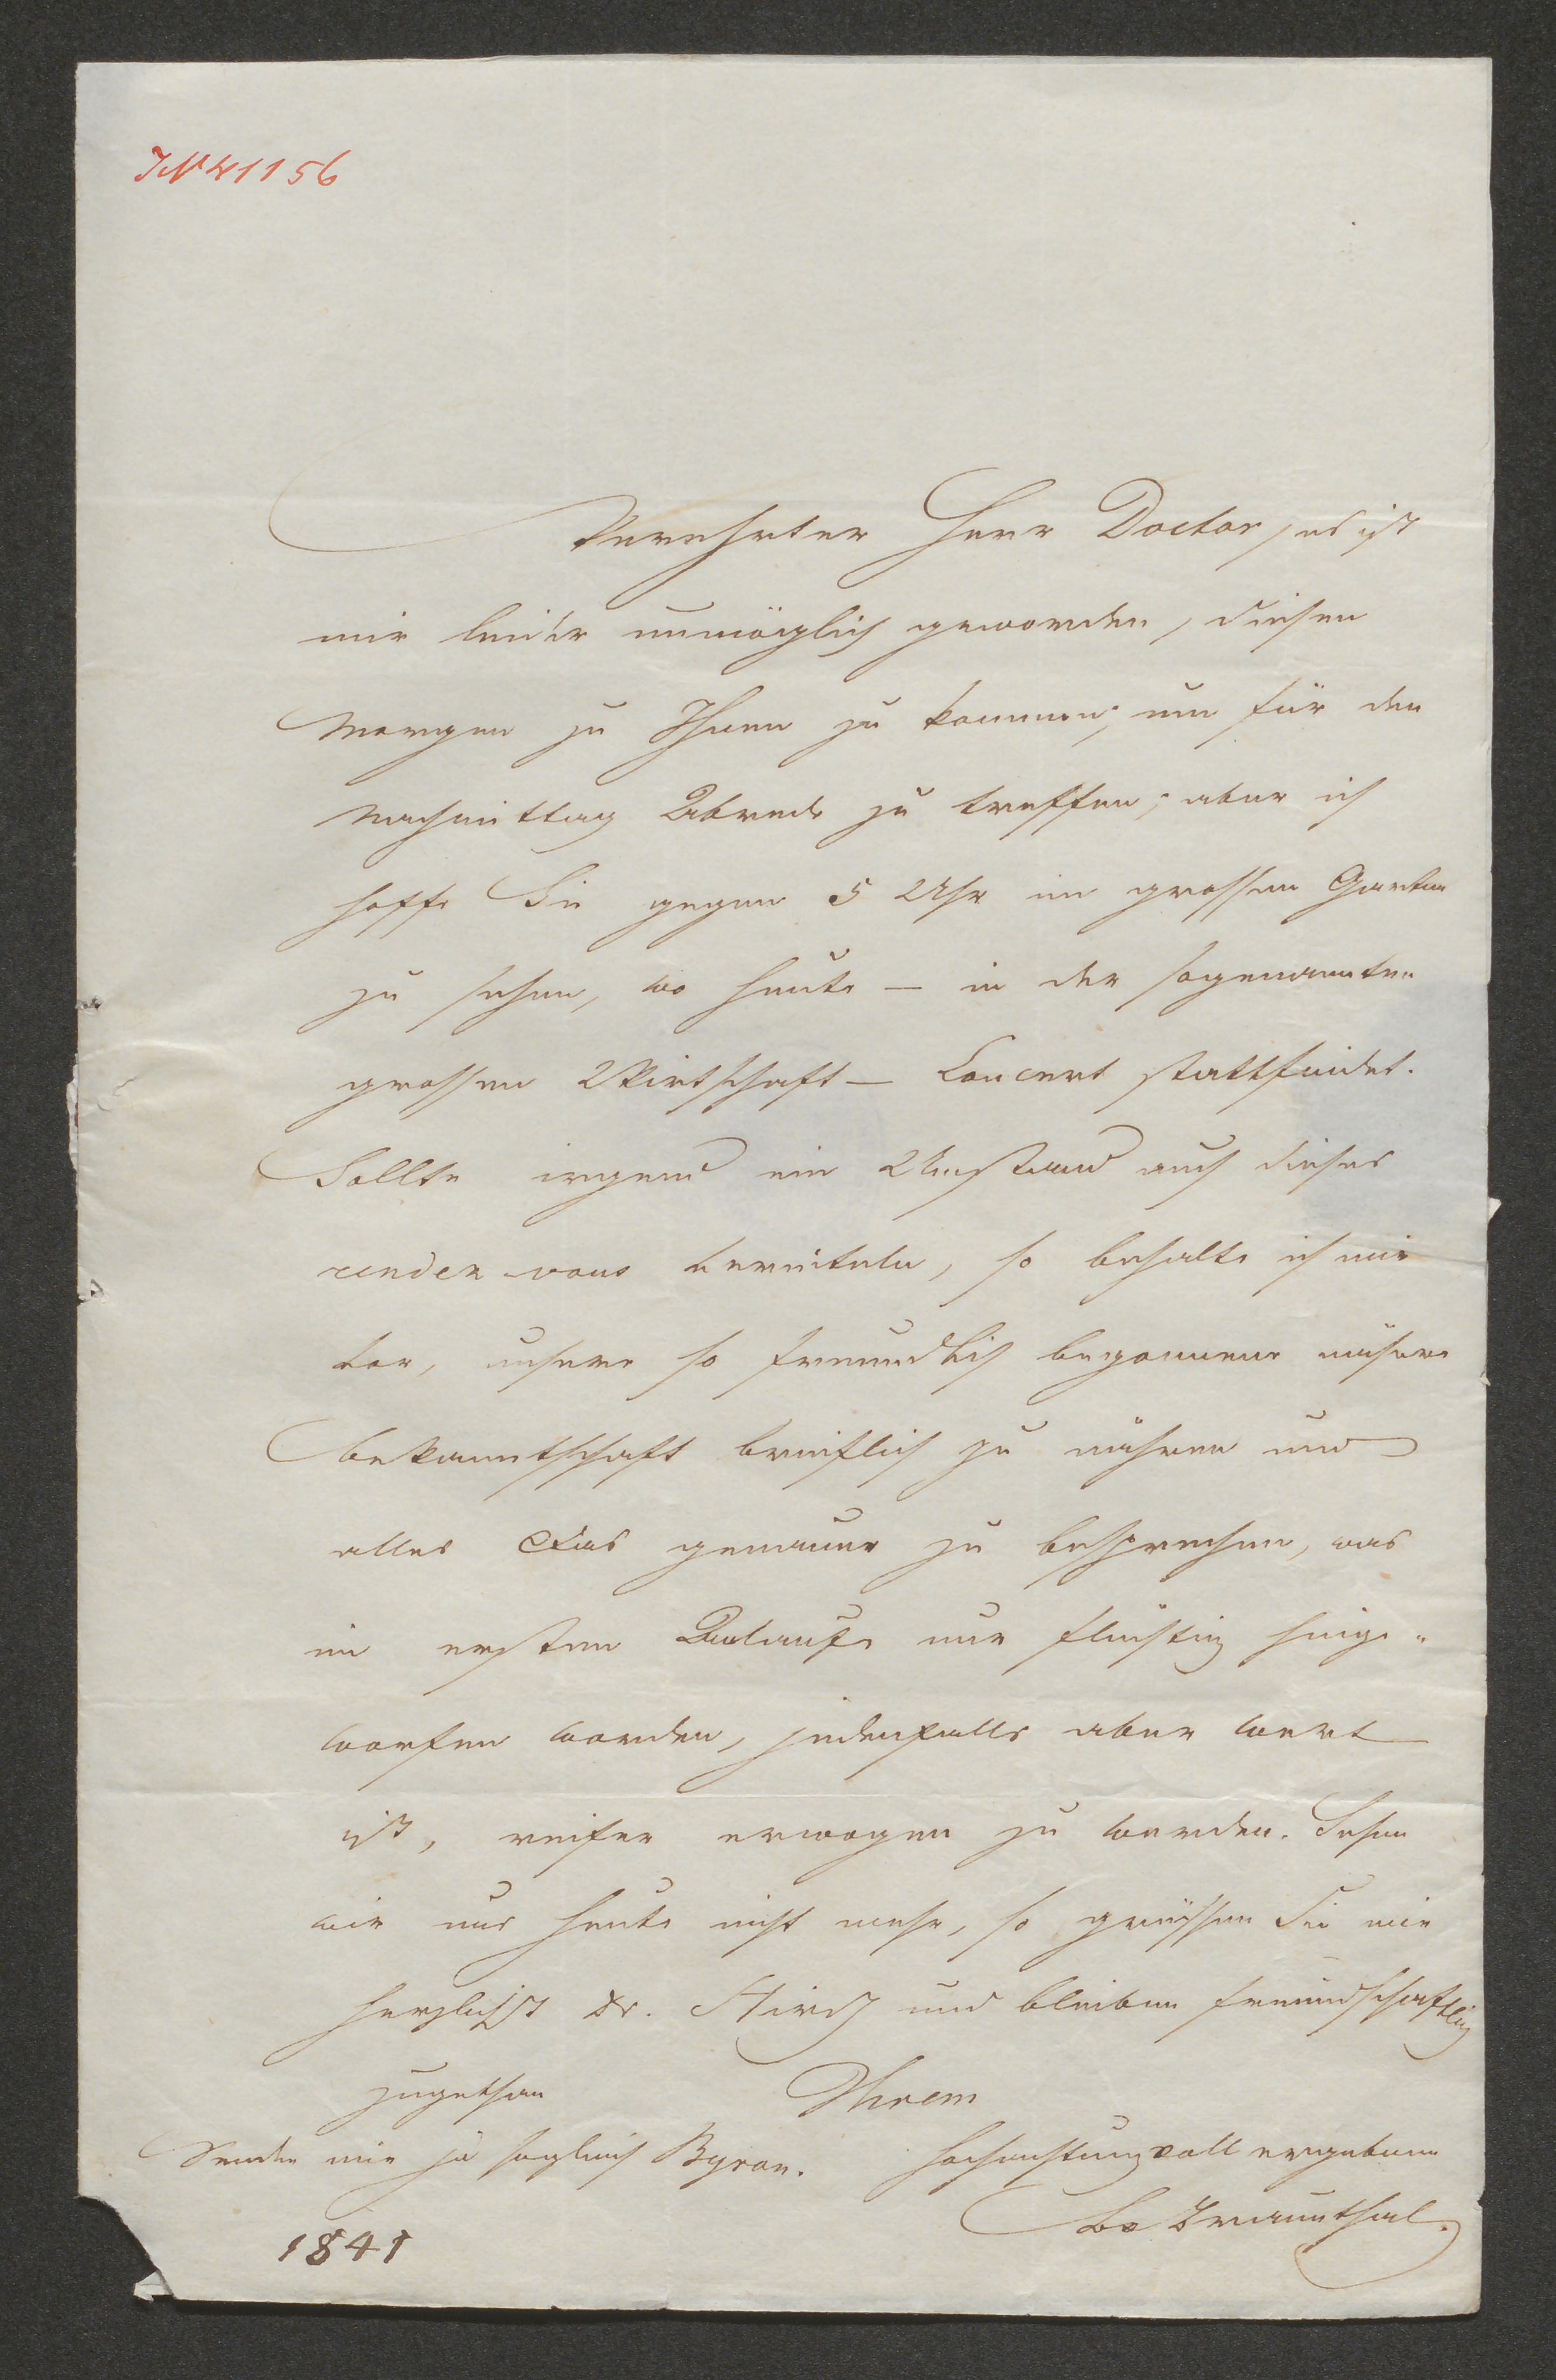 IN 41156
Verehrter Herr Doctor, es ist
mir leider unmöglich geworden, diesen
Morgen zu Ihnen zu kommen, um für den
Nachmittag Abrede zu treffen; aber ich
hoffe Sie gegen 5 Uhr im grossen Garten
zu sehen, wo heute — in der sogenannten
grossen Wirtschaft — Concert stattfindet.
Sollte irgend ein Umstand auch dieses
rendez-vous vereiteln, so behalte ich mir
vor, unsere so freundlich begonnene nähere
Bekanntschaft brieflich zu nähren und
alles Das genauer zu besprechen, was
im ersten Anlaufe nur flüchtig hinge-
worfen worden, jedenfalls aber wert
ist, reifer erwogen zu werden. Sehen
wir uns heute nicht mehr, so grüssen Sie mir
herzlichst Dr. und bleiben freundschaftlich
zugethan Ihrem
Senden mir ja sogleich Byron. hochachtungsvoll ergebenen
Braunthal.
1841